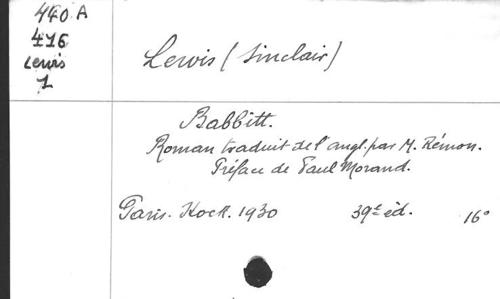 440 A
416
Lewis
1
Lewis (Sinclair)
Babbitt.
Roman traduit de l'angl. par M. Rémon.
Préface de Paul Morand.
Paris. Stock. 1930 39e éd. 16°